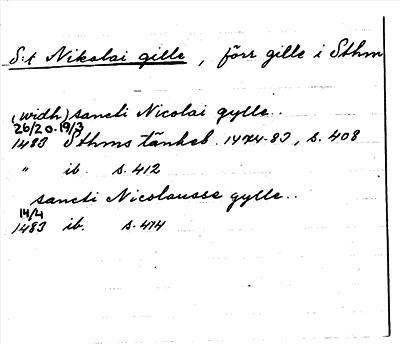 S:t Nikolai gille, förr gille i Sthm
(widh) sancti Nicolai gylle..
26/20.19/3
1483 Sthms tänkeb. 1474-83, s. 408
" ib. s. 412
sancti Nicolausse gylle..
14/4
1483 ib. s. 414